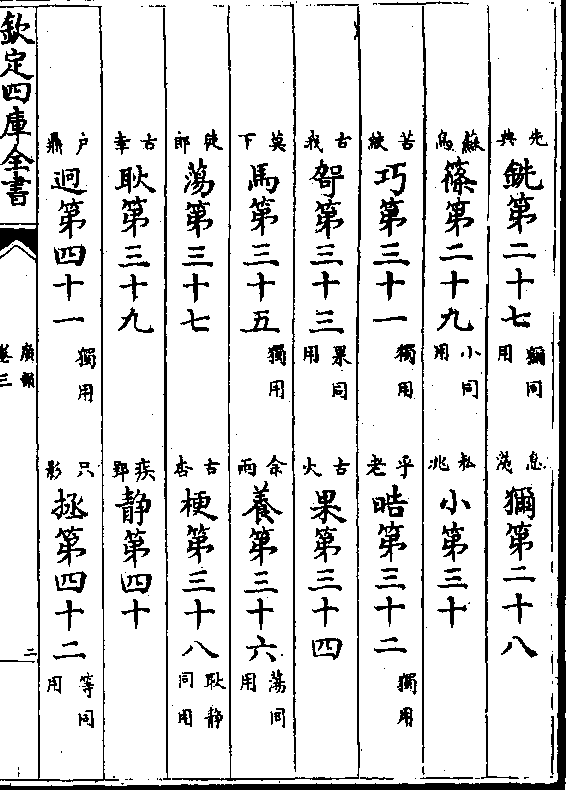 先典銑第二十七獮同用息淺獮第二十八
蘇鳥篠第二十九小同用私兆小第三十
苦絞巧第三十一獨用乎老晧第三十二獨用
古我哿第三十三果同用古火果第三十四
莫下馬第三十五獨用余兩養第三十六蕩同用
徒郎蕩第三十七古杏梗第三十八耿静同用
古幸耿第三十九疾郢静第四十
戶鼎迥第四十一獨用只影拯第四十二等同用
欽定四庫全書
廣韻
卷三
二